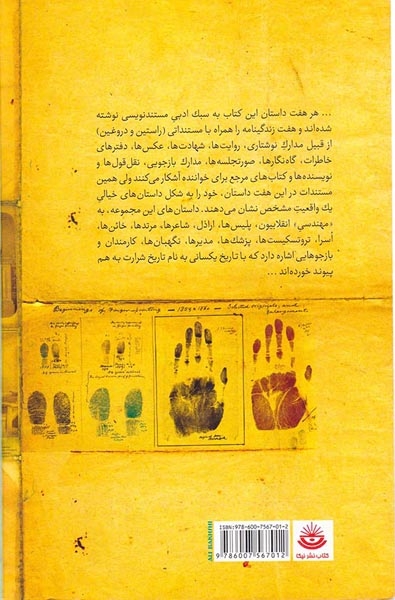 ... هر هفت داستان این کتاب به سبک ادبیِ مستندنویسی نوشته
شده‌اند و هفت زندگینامه را همراه با مستنداتی (راستین و دروغین)
از قبیل مدارکِ نوشتاری، روایت‌ها، شهادت‌ها، عکس‌ها، دفترهای
خاطرات، گاه‌نگارها، صورتجلسه‌ها، مدارک بازجویی، نقل‌قول‌ها و
نویسنده‌ها و کتاب‌های مرجع برای خواننده آشکار می‌کنند ولی همین
مستندات در این هفت داستان، خود را به شکل داستان‌های خیالیِ
یک واقعیتِ مشخص نشان می‌دهند. داستان‌های این مجموعه، به
«مهندسیِ» انقلابیون، پلیس‌ها، اراذل، شاعرها، مرتدها، خائن‌ها،
اُسرا، تروتسکیست‌ها، پزشک‌ها، مدیرها، نگهبان‌ها، کارمندان و
بازجوهایی اشاره دارد که با تاریخ یکسانی به نام تاریخ شرارت به هم
پیوند خورده‌اند ...
Beginnings of Finger-printing — 1859 & 1860 — Selected originals, and enlargements
ISBN: 978-600-7567-01-2
9 786007 567012
ALI BAKHSHI
کتاب نشر نیکا